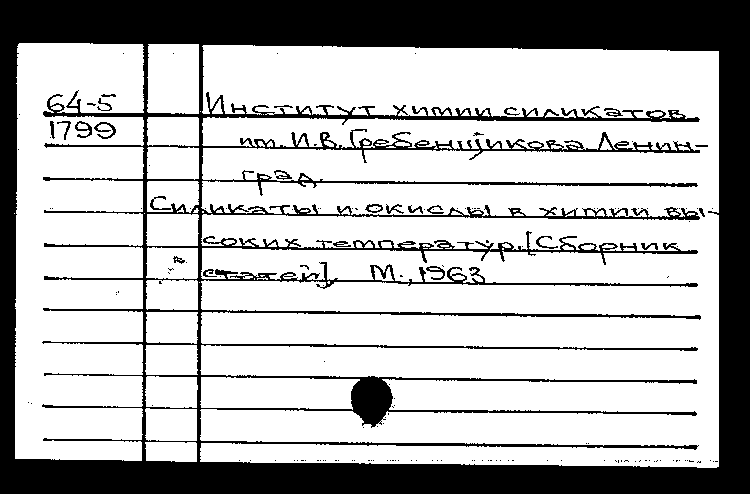 64-5 Институт химии силикатов
1799 им. И.В. Гребенщикова Ленин-
град.
Силикаты и окислы в химии вы-
соких температур. [Сборник
статей]. М., 1963.